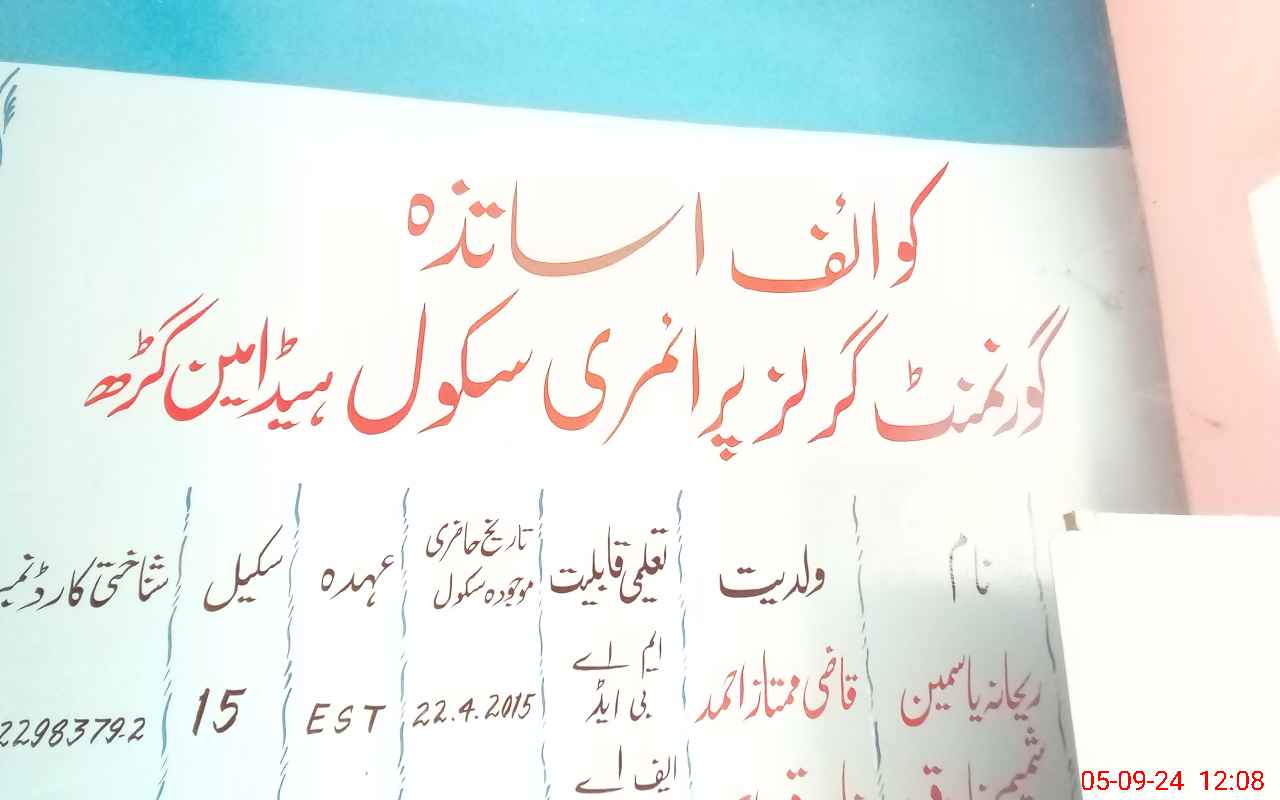 کوائف اساتذہ
گورنمنٹ گرلز پرائمری سکول ہیڈ امین گڑھ
نام ولدیت تعلیمی قابلیت تاریخ حاضری موجودہ سکول عہدہ سکیل شناختی کارڈ
ریحانہ یاسمین قاضی ممتاز احمد ایم اے بی ایڈ 22.4.2015 EST 15 2298379-2
شمیم ایف اے
05-09-24 12:08